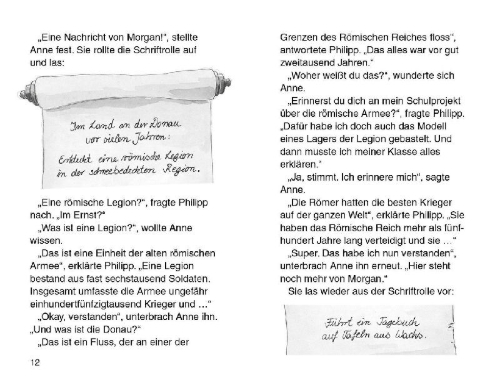 „Eine Nachricht von Morgan!“, stellte
Anne fest. Sie rollte die Schriftrolle auf
und las:
Im Land an der Donau
vor vielen Jahren:
Entdeckt eine römische Legion
in der schneebedeckten Region.
„Eine römische Legion?“, fragte Philipp
nach. „Im Ernst?“
„Was ist eine Legion?“, wollte Anne
wissen.
„Das ist eine Einheit der alten römischen
Armee“, erklärte Philipp. „Eine Legion
bestand aus fast sechstausend Soldaten.
Insgesamt umfasste die Armee ungefähr
einhundertfünfzigtausend Krieger und …“
„Okay, verstanden“, unterbrach Anne ihn.
„Und was ist die Donau?“
„Das ist ein Fluss, der an einer der
12
Grenzen des Römischen Reiches floss“,
antwortete Philipp. „Das alles war vor gut
zweitausend Jahren.“
„Woher weißt du das?“, wunderte sich
Anne.
„Erinnerst du dich an mein Schulprojekt
über die römische Armee?“, fragte Philipp.
„Dafür habe ich doch auch das Modell
eines Lagers der Legion gebastelt. Und
dann musste ich meiner Klasse alles
erklären.“
„Ja, stimmt. Ich erinnere mich“, sagte
Anne.
„Die Römer hatten die besten Krieger
auf der ganzen Welt“, erklärte Philipp. „Sie
haben das Römische Reich mehr als fünf-
hundert Jahre lang verteidigt und sie …“
„Super. Das habe ich nun verstanden“,
unterbrach Anne ihn erneut. „Hier steht
noch mehr von Morgan.“
Sie las wieder aus der Schriftrolle vor:
Führt ein Tagebuch
auf Tafeln aus Wachs.